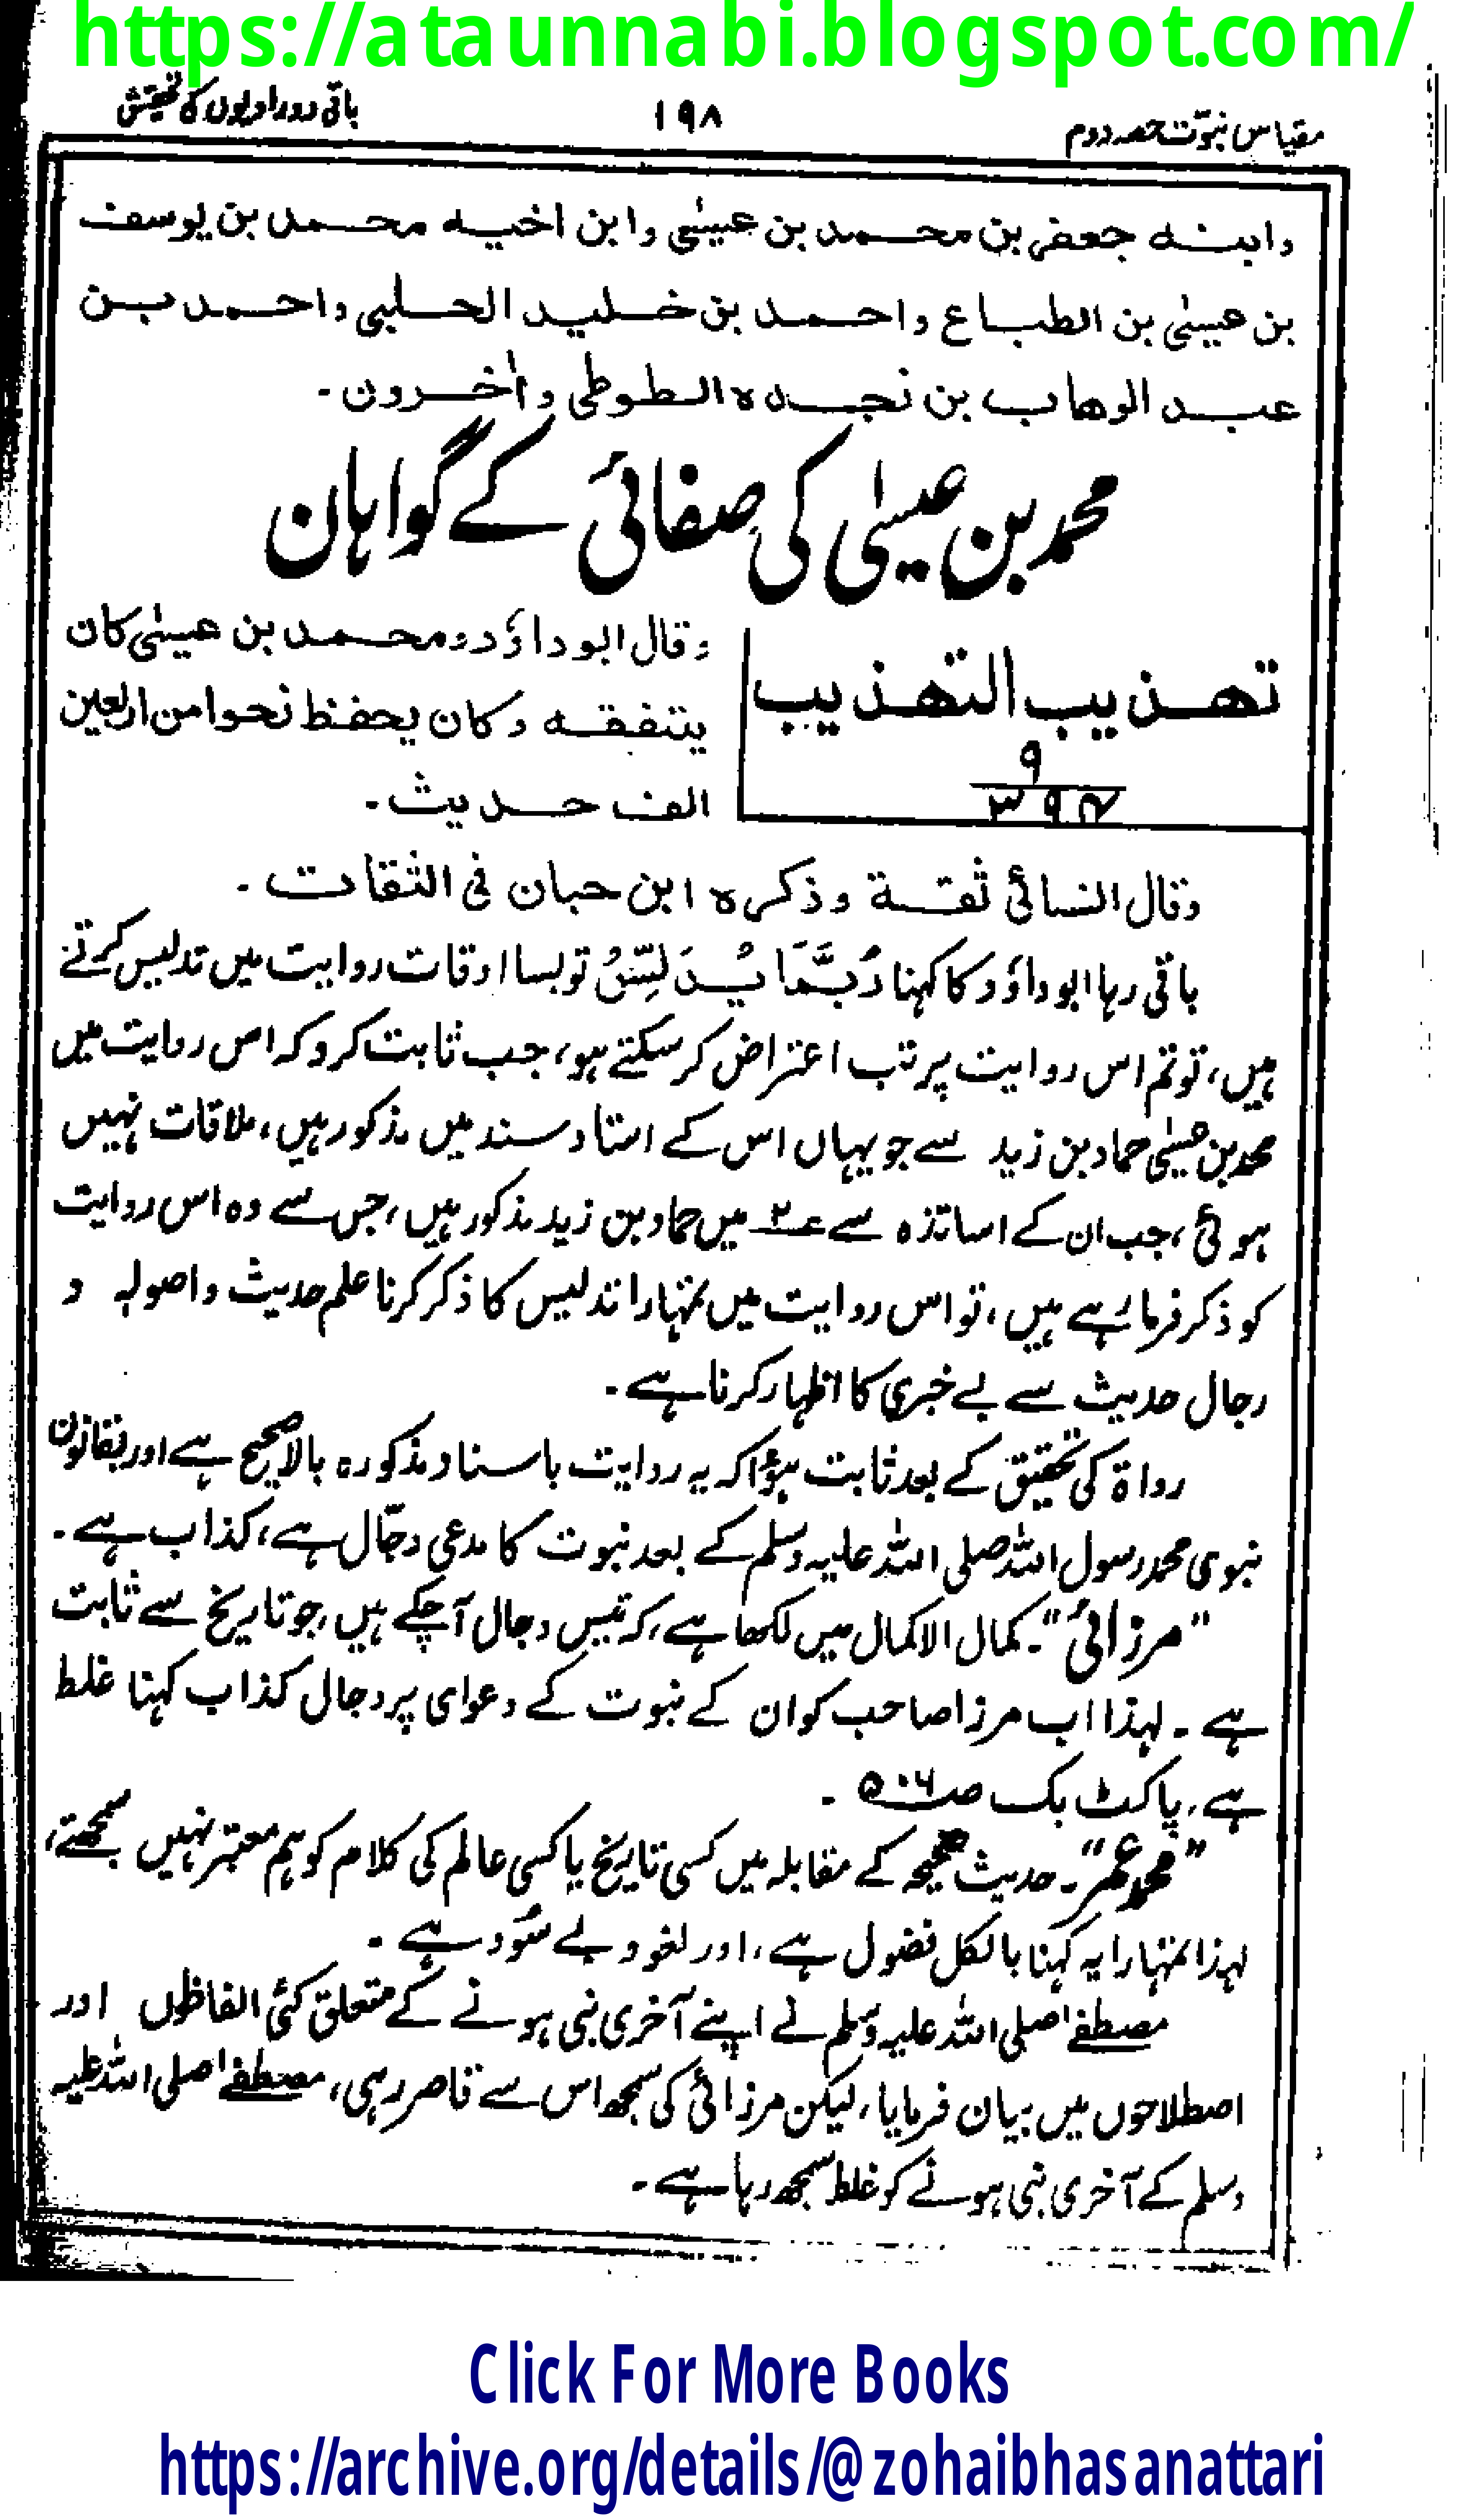 https://ataunnabi.blogspot.com/
مقیاس نبوّت حصہ دوم ۱۹۸ باقی دو راویوں کی تحقیق
وابنه جعفر بن محمد بن عیسٰی وابن اخیه محمد بن یوسف
بن عیسٰی بن الطباع واحمد بن خلید الحلبی واحمد بن
عبد الوهاب بن نجده الطوطی واٰخرون۔
محمد بن عیسٰی کی صفائی کے گواہان
تهذیب التهذیب
۹
۳۹۴
وقال ابو داؤد ومحمد بن عیسٰی کان
یتفقه وکان یحفظ نحوا من اربعین
الف حدیث۔
وقال النسائی ثقة وذکره ابن حبان فی الثقات۔
باقی رہا ابوداؤد کا کہنا رُبَّمَا یُدَلِّسُ تو بسا اوقات روایت میں تدلیس کرتے
ہیں، تو تم اس روایت پر تب اعتراض کر سکتے ہو، جب ثابت کرو کہ اس روایت میں
محمد بن عیسٰی حماد بن زید سے جو یہاں اس کے استاد سند میں مذکور ہیں، ملاقات نہیں
ہوئی، جب ان کے اساتذہ سے ؏۲ میں حماد بن زید مذکور ہیں، جس سے وہ اس روایت
کو ذکر فرما رہے ہیں، تو اس روایت میں تمہارا تدلیس کا ذکر کرنا علم حدیث و اصولہ و
رجال حدیث سے بے خبری کا اظہار کرنا ہے۔
رواۃ کی تحقیق کے بعد ثابت ہؤا کہ یہ روایت باسناد مذکورہ بالا صحیح ہے اور بقانون
نبوی محمد رسول اللہ صلی اللہ علیہ وسلم کے بعد نبوت کا مدعی دجّال ہے، کذاب ہے۔
"مرزائی"۔ کمال الاکمال میں لکھا ہے، کہ تیس دجال آچکے ہیں، جو تاریخ سے ثابت
ہے۔ لہذا اب مرزا صاحب کو ان کے نبوت کے دعوای پر دجال کذاب کہنا غلط
ہے، پاکٹ بک صـ۵۰۶۔
"محمد عمر"۔ حدیث صحیحہ کے مقابلہ میں کسی تاریخ یا کسی عالم کی کلام کو ہم معتبر نہیں سمجھتے،
لہذا تمہارا یہ کہنا بالکل فضول ہے، اور لغو و بے سُود ہے۔
مصطفےٰ صلی اللہ علیہ وسلم نے اپنے آخری نبی ہونے کے متعلق کئی الفاظوں اور
اصطلاحوں میں بیان فرمایا، لیکن مرزائی کی سمجھ اس سے قاصر رہی، مصطفےٰ صلی اللہ علیہ
وسلم کے آخری نبی ہونے کو غلط سمجھ رہا ہے۔
Click For More Books
https://archive.org/details/@zohaibhasanattari